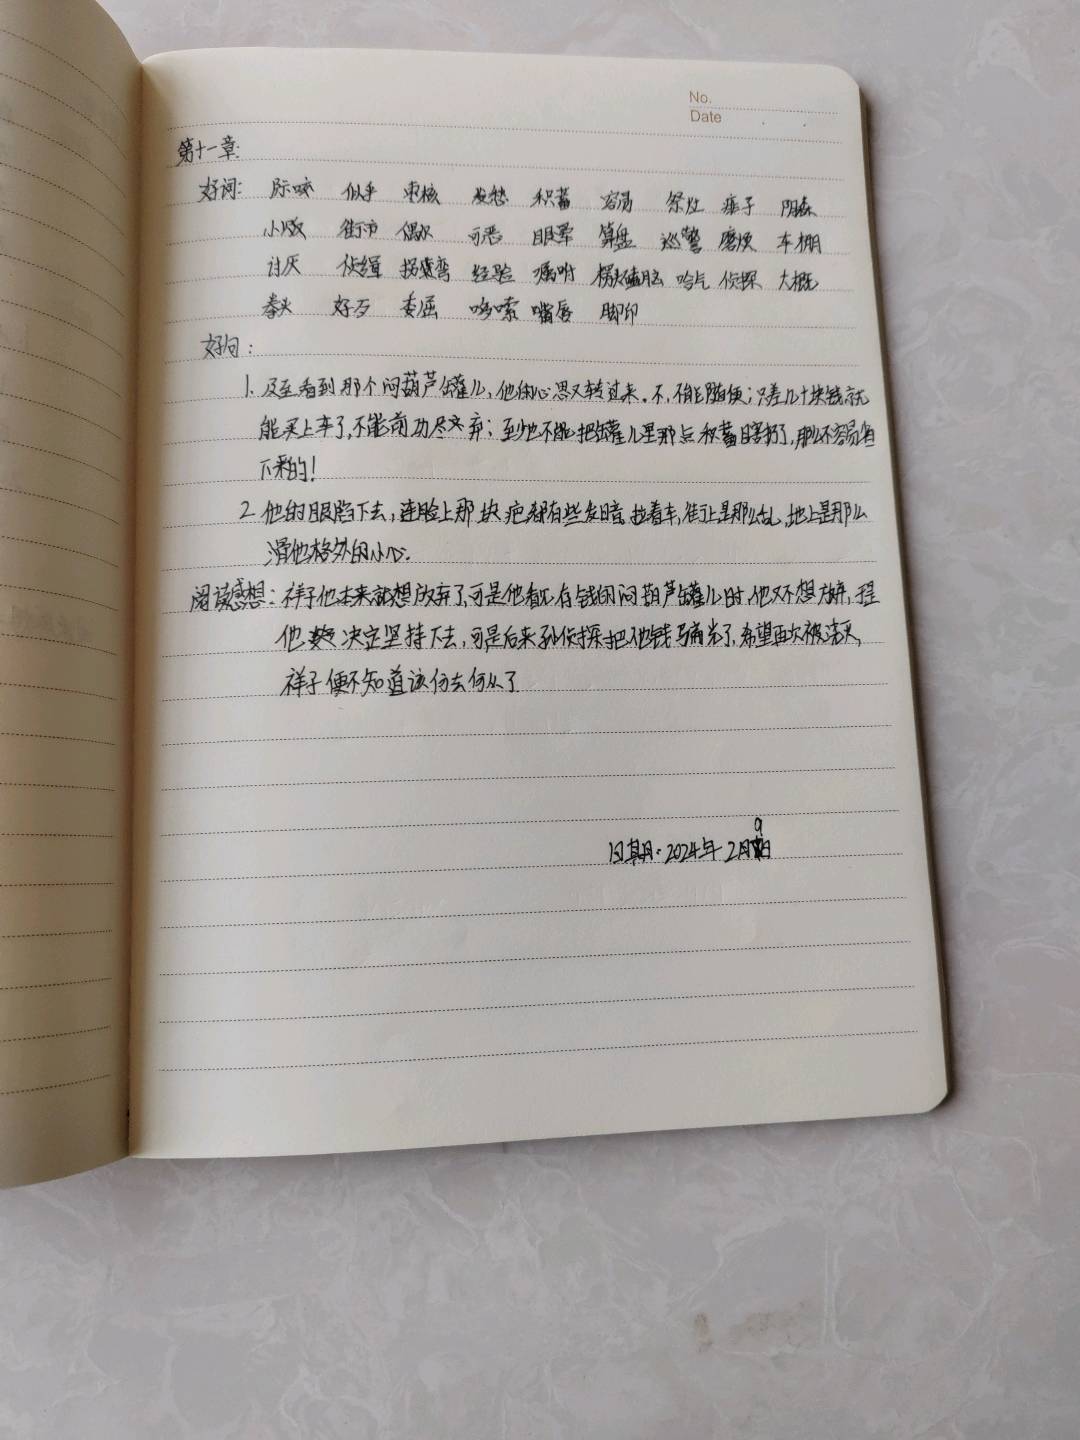 No.
Date
第十一章:
好词: 似乎 枣核 发愁 积蓄 容易 祭灶 瘪子 阴森
小贩 街市 偶尔 可恶 眼晕 算盘 巡警 磨烦 车棚
讨厌 侦缉 拐弯 经验 嘱咐 哈气 侦探 大概
拳头 好歹 委屈 哆嗦 嘴唇 脚印
好句:
1. 及至看到那个闷葫芦罐儿,他的心思又转过来。不,不能随便;只差几十块钱就
能买上车了,不能前功尽弃;至少他不能把罐儿里那点积蓄瞎扔了,那么不容易省
下来的!
2. 他的眼陷下去,连脸上那块疤都有些发暗。拉着车,街上是那么乱,地上是那么
滑他格外的小心。
阅读感想: 祥子他本来都想放弃了,可是他看见存钱的闷葫芦罐儿时,他又不想放弃,
他 决定坚持下去,可是后来孙侦探把他钱骗光了,希望再次被浇灭,
祥子便不知道该何去何从了
日期: 2024年2月9日